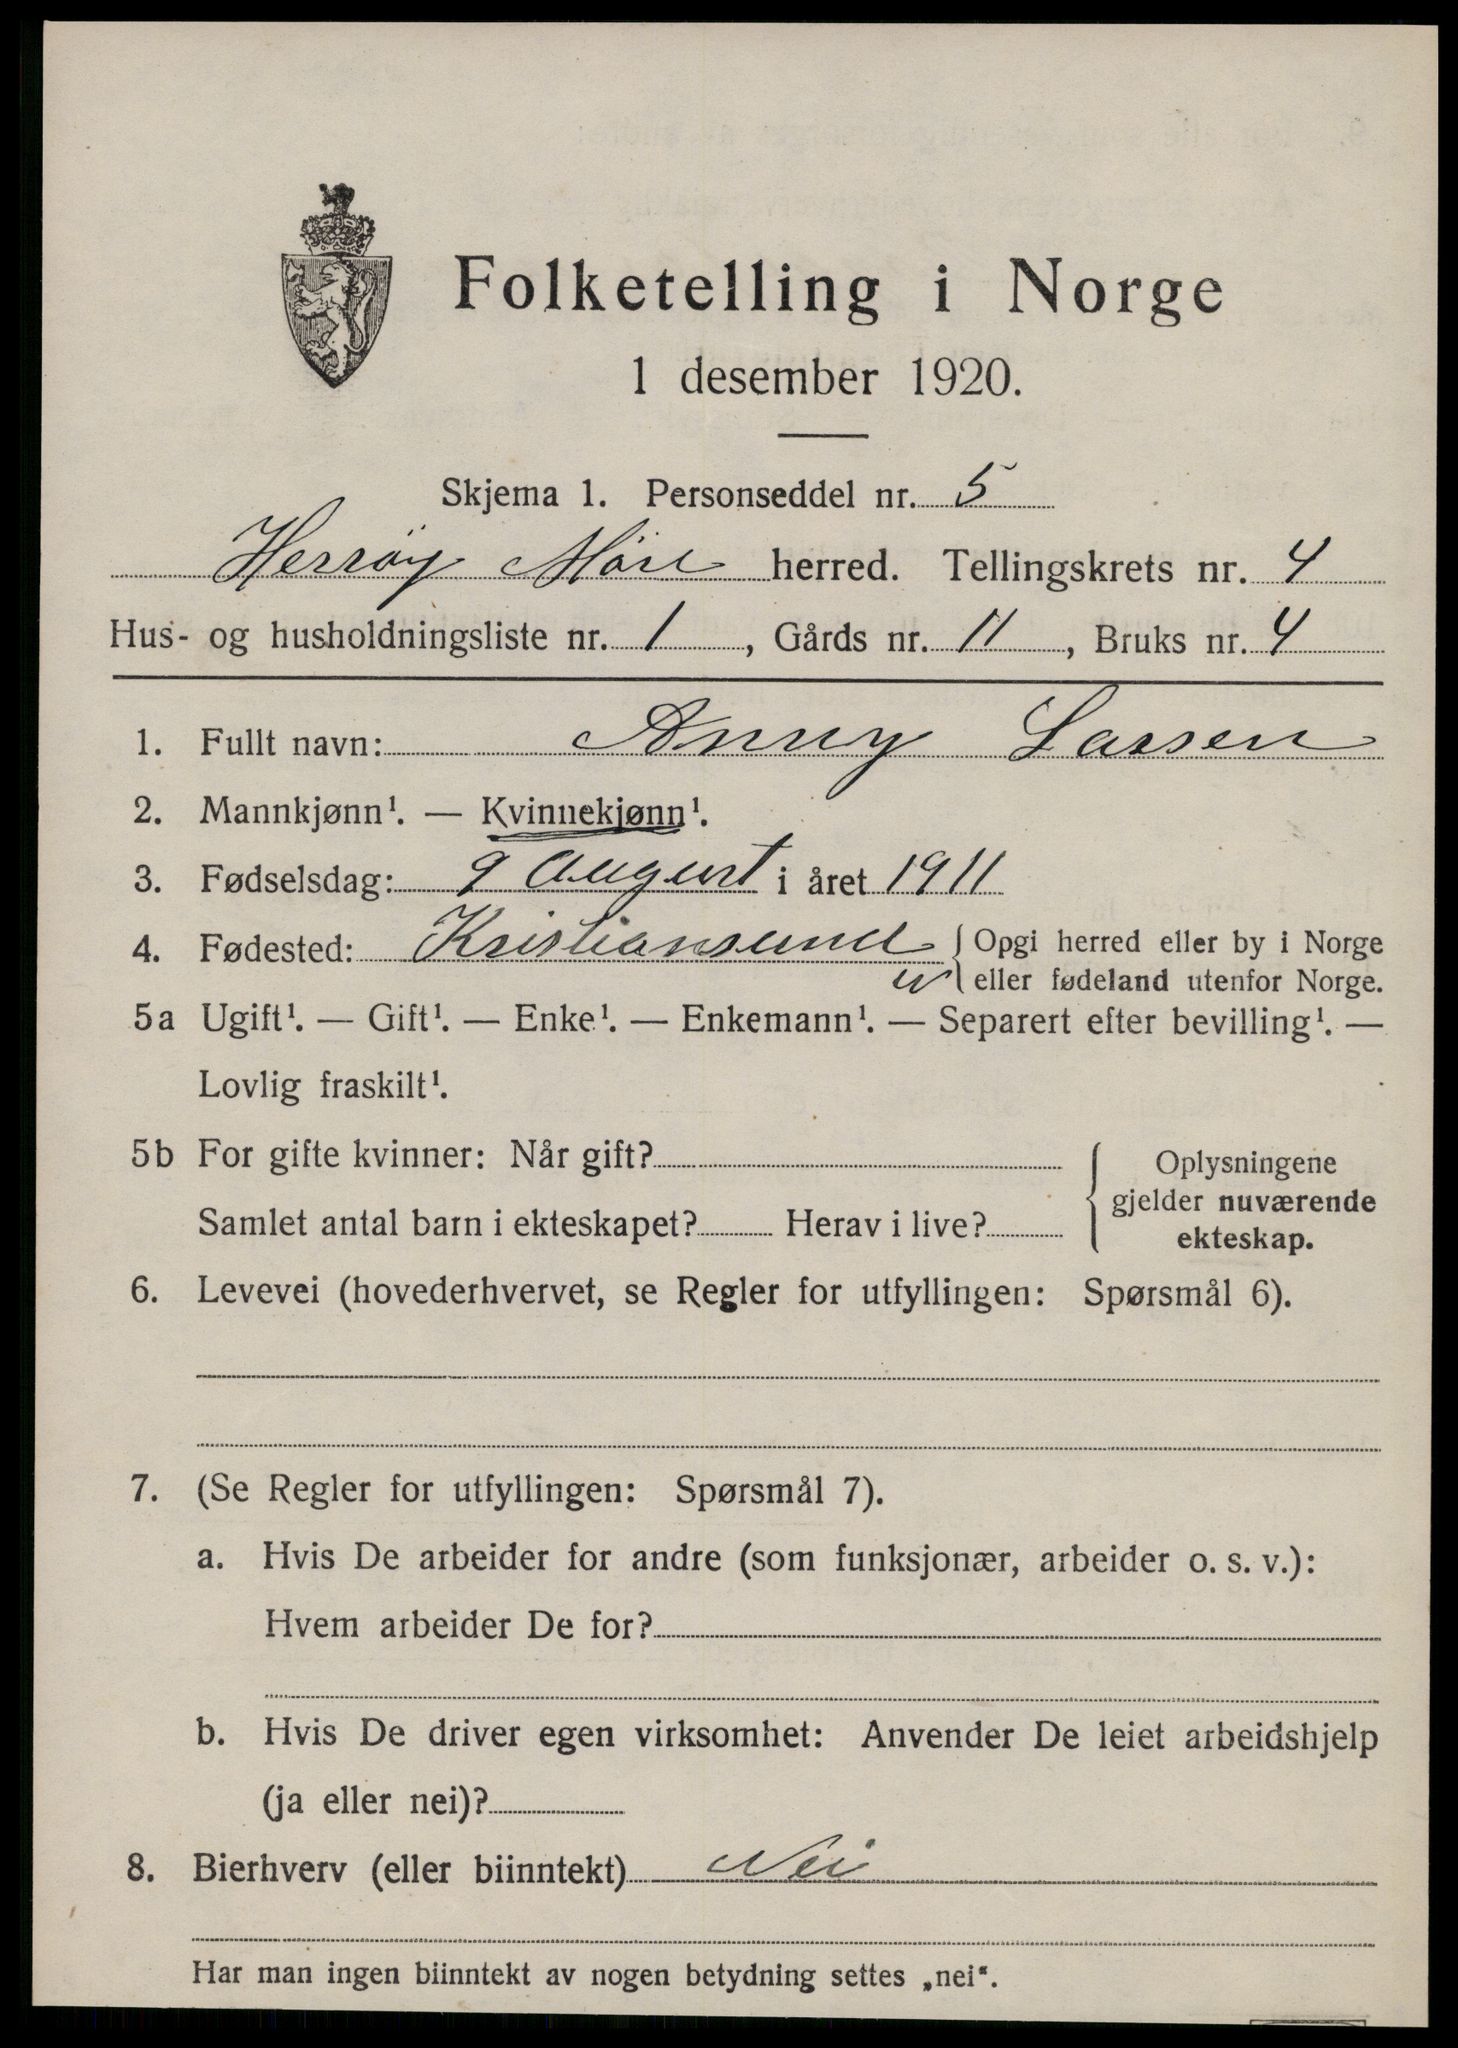 Folketelling i Norge
1 desember 1920.
Skjema 1. Personseddel nr. 5
Herrøy Møre herred. Tellingskrets nr. 4
Hus- og husholdningsliste nr. 1, Gårds nr. 11, Bruks nr. 4
1. Fullt navn: Anny Larsen
2. Mannkjønn¹. — Kvinnekjønn¹.
3. Fødselsdag: 9 August i året 1911
4. Fødested: Kristiansund { Opgi herred eller by i Norge
eller fødeland utenfor Norge.
5a Ugift¹. — Gift¹. — Enke¹. — Enkemann¹. — Separert efter bevilling¹. —
Lovlig fraskilt¹.
5b For gifte kvinner: Når gift?
Samlet antal barn i ekteskapet? Herav i live?
{ Oplysningene
gjelder nuværende
ekteskap.
6. Levevei (hovederhvervet, se Regler for utfyllingen: Spørsmål 6).
7. (Se Regler for utfyllingen: Spørsmål 7).
a. Hvis De arbeider for andre (som funksjonær, arbeider o. s. v.):
Hvem arbeider De for?
b. Hvis De driver egen virksomhet: Anvender De leiet arbeidshjelp
(ja eller nei)?
8. Bierhverv (eller biinntekt) Nei
Har man ingen biinntekt av nogen betydning settes „nei“.